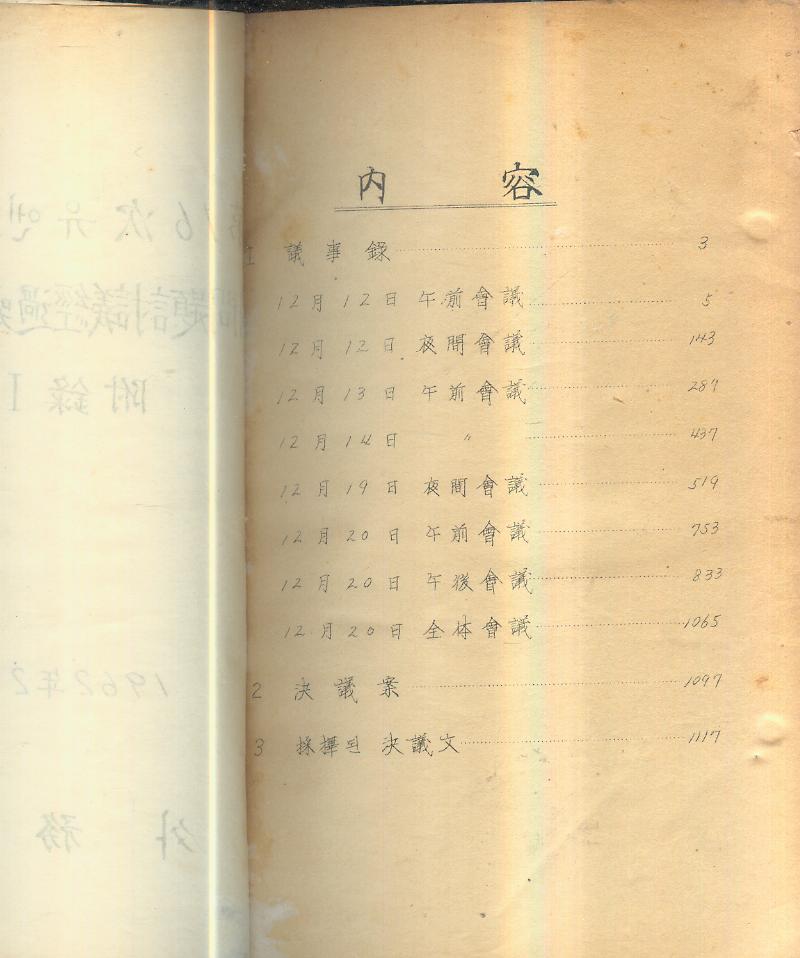 內 容
1 議事錄 3
12月12日 午前會議 5
12月12日 夜間會議 143
12月13日 午前會議 289
12月14日 〃 437
12月19日 夜間會議 519
12月20日 午前會議 753
12月20日 午後會議 833
12月20日 全体會議 1065
2 決議案 1097
3 採擇된 決議文 1117
16次 유엔
問題討議經過
附錄 I
1962年2
外 務